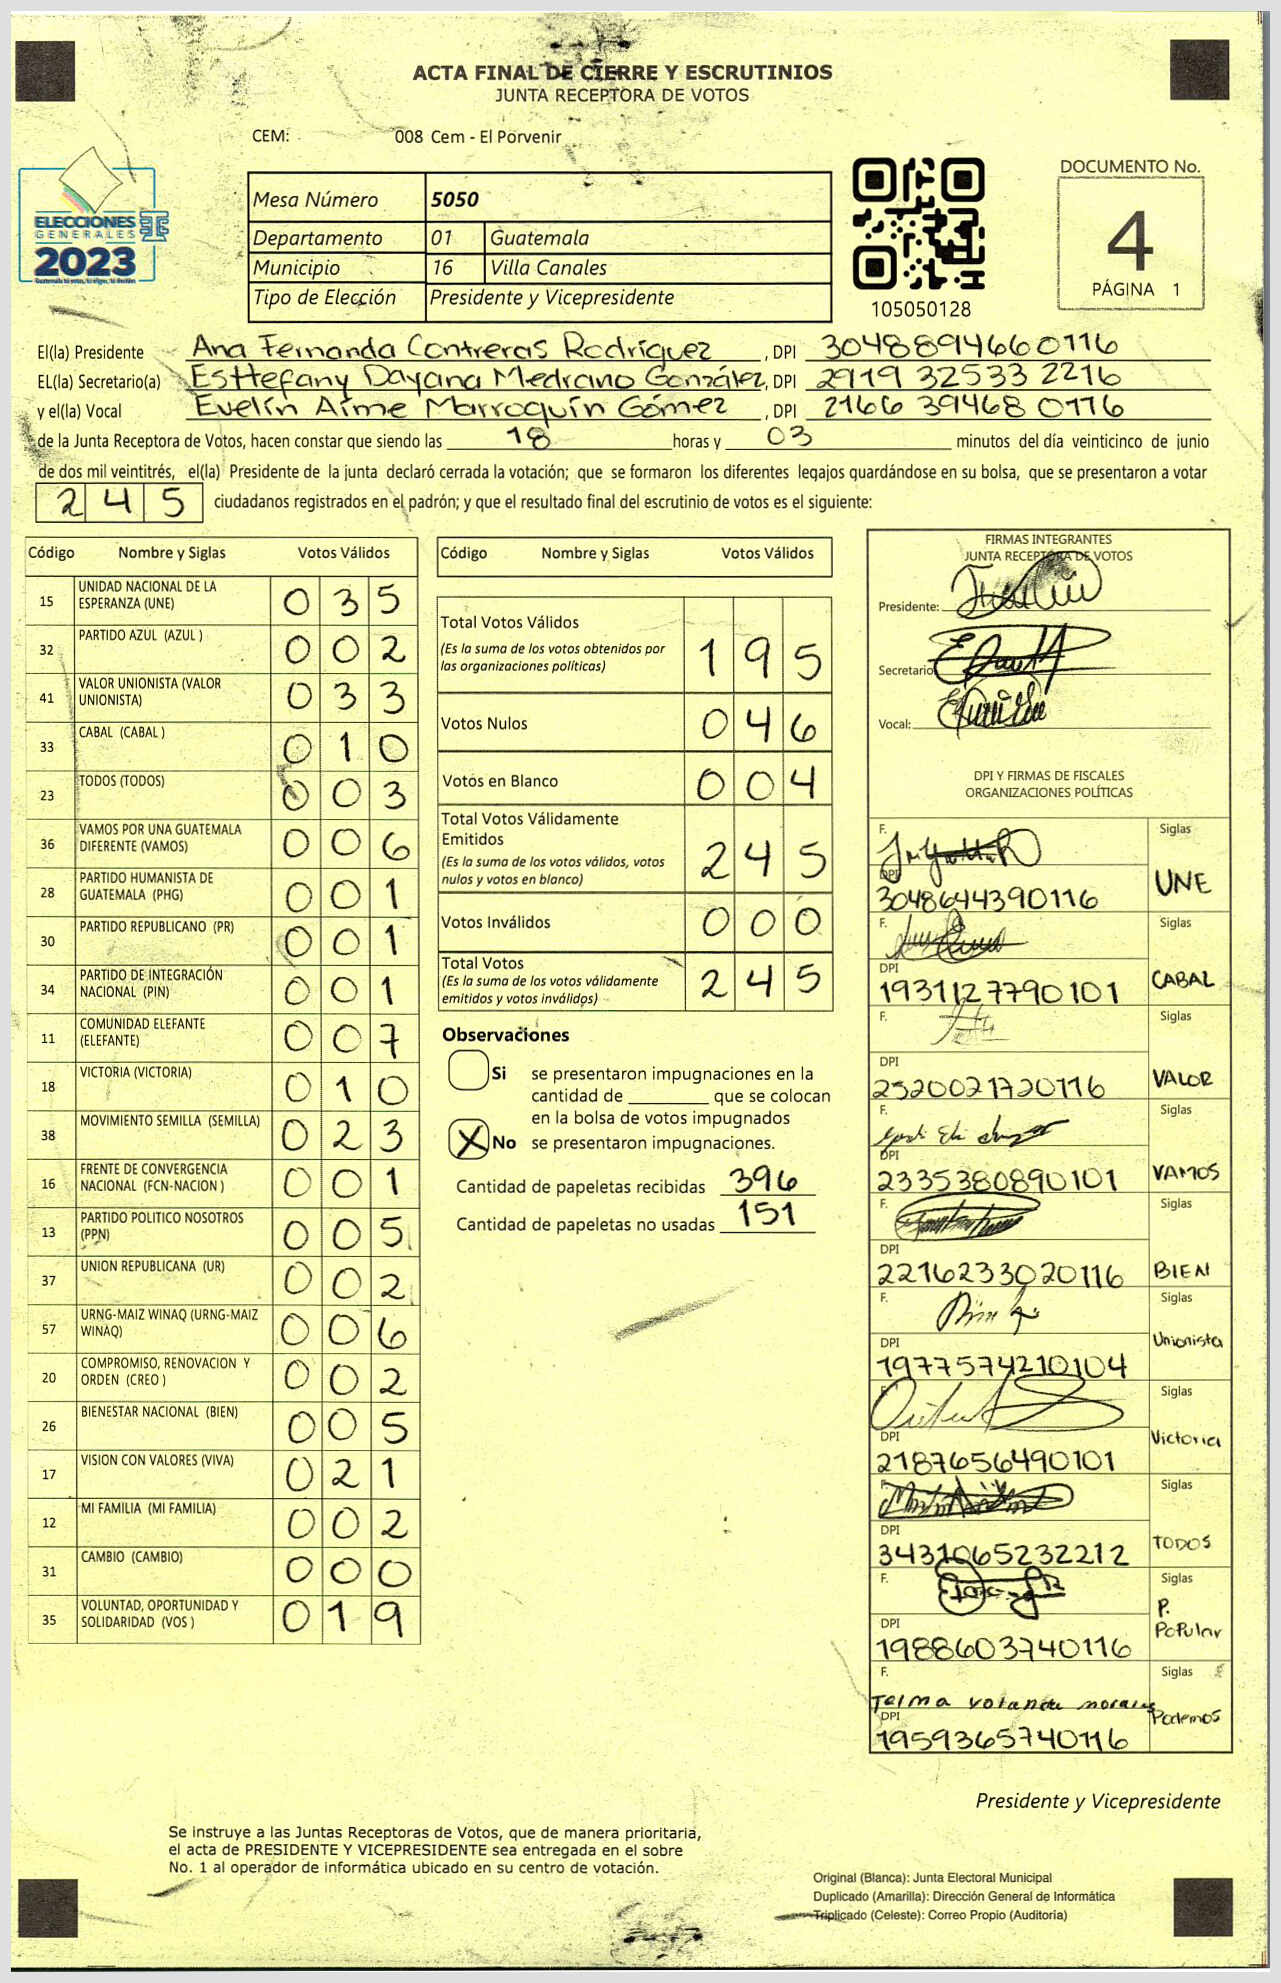 ACTA FINAL DE CIERRE Y ESCRUTINIOS
JUNTA RECEPTORA DE VOTOS
CEM: 008 Cem - El Porvenir
ELECCIONES
GENERALES
2023
Mesa Número 5050
Departamento 01 Guatemala
Municipio 16 Villa Canales
Tipo de Elección Presidente y Vicepresidente
105050128
DOCUMENTO No.
4
PÁGINA 1
El(la) Presidente Ana Fernanda Contreras Rodríguez, DPI 3048894660116
EL(la) Secretario(a) Esttefany Dayana Medrano González, DPI 2919 32533 2216
y el(la) Vocal Evelin Aime Marroquín Gómez, DPI 2166 39468 0116
de la Junta Receptora de Votos, hacen constar que siendo las 18 horas y 03 minutos del día veinticinco de junio
de dos mil veintitrés, el(la) Presidente de la junta declaró cerrada la votación; que se formaron los diferentes legajos quardándose en su bolsa, que se presentaron a votar
245 ciudadanos registrados en el padrón; y que el resultado final del escrutinio de votos es el siguiente:
Código Nombre y Siglas Votos Válidos
15 UNIDAD NACIONAL DE LA ESPERANZA (UNE) 035
32 PARTIDO AZUL (AZUL ) 002
41 VALOR UNIONISTA (VALOR UNIONISTA) 033
33 CABAL (CABAL ) 010
23 TODOS (TODOS) 003
36 VAMOS POR UNA GUATEMALA DIFERENTE (VAMOS) 006
28 PARTIDO HUMANISTA DE GUATEMALA (PHG) 001
30 PARTIDO REPUBLICANO (PR) 001
34 PARTIDO DE INTEGRACIÓN NACIONAL (PIN) 001
11 COMUNIDAD ELEFANTE (ELEFANTE) 007
18 VICTORIA (VICTORIA) 010
38 MOVIMIENTO SEMILLA (SEMILLA) 023
16 FRENTE DE CONVERGENCIA NACIONAL (FCN-NACION ) 001
13 PARTIDO POLITICO NOSOTROS (PPN) 005
37 UNION REPUBLICANA (UR) 002
57 URNG-MAIZ WINAQ (URNG-MAIZ WINAQ) 006
20 COMPROMISO, RENOVACION Y ORDEN (CREO ) 002
26 BIENESTAR NACIONAL (BIEN) 005
17 VISION CON VALORES (VIVA) 021
12 MI FAMILIA (MI FAMILIA) 002
31 CAMBIO (CAMBIO) 000
35 VOLUNTAD, OPORTUNIDAD Y SOLIDARIDAD (VOS ) 019
Código Nombre y Siglas Votos Válidos
Total Votos Válidos
(Es la suma de los votos obtenidos por
las organizaciones políticas) 195
Votos Nulos 046
Votos en Blanco 004
Total Votos Válidamente
Emitidos
(Es la suma de los votos válidos, votos
nulos y votos en blanco) 245
Votos Inválidos 000
Total Votos
(Es la suma de los votos válidamente
emitidos y votos inválidos) 245
Observaciones
Si se presentaron impugnaciones en la
cantidad de ________ que se colocan
en la bolsa de votos impugnados
X No se presentaron impugnaciones.
Cantidad de papeletas recibidas 396
Cantidad de papeletas no usadas 151
FIRMAS INTEGRANTES
JUNTA RECEPTORA DE VOTOS
Presidente:
Secretario
Vocal:
DPI Y FIRMAS DE FISCALES
ORGANIZACIONES POLÍTICAS
F. Siglas
DPI
3048644390116 UNE
F. Siglas
DPI
1931127790101 CABAL
F. Siglas
DPI
2520021720116 VALOR
F. Siglas
DPI
2335380890101 VAMOS
F. Siglas
DPI
2216233020116 BIEN
F. Siglas
DPI
1977574210104 Unionista
F. Siglas
DPI
2187656490101 Victoria
F. Siglas
DPI
3431065232212 TODOS
F. Siglas
DPI
1988603740116 P. Popular
F. Siglas
Telma Yolanda morales
DPI
1959365740116 Podemos
Presidente y Vicepresidente
Se instruye a las Juntas Receptoras de Votos, que de manera prioritaria,
el acta de PRESIDENTE Y VICEPRESIDENTE sea entregada en el sobre
No. 1 al operador de informática ubicado en su centro de votación.
Original (Blanca): Junta Electoral Municipal
Duplicado (Amarilla): Dirección General de Informática
Triplicado (Celeste): Correo Propio (Auditoria)